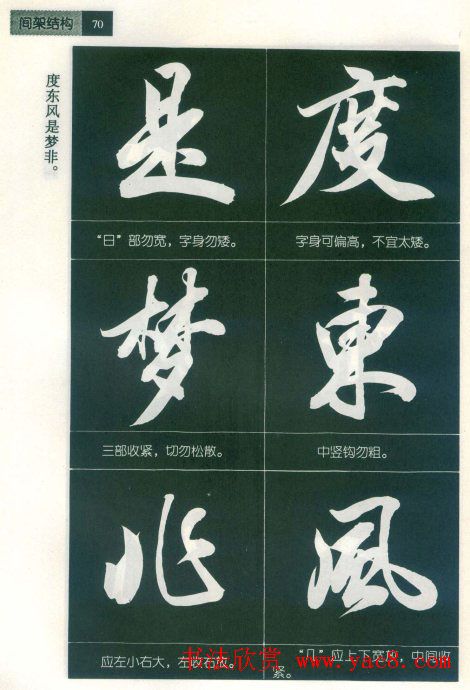 间架结构 70
度东风是梦非。
度
字身可偏高，不宜太矮。
東
中竖钩勿粗。
風
“几”应上下宽放，中间收
紧。
是
“日”部勿宽，字身勿矮。
梦
三部收紧，切勿松散。
非
应左小右大，左收右放。
书法欣赏 www.yac8.com